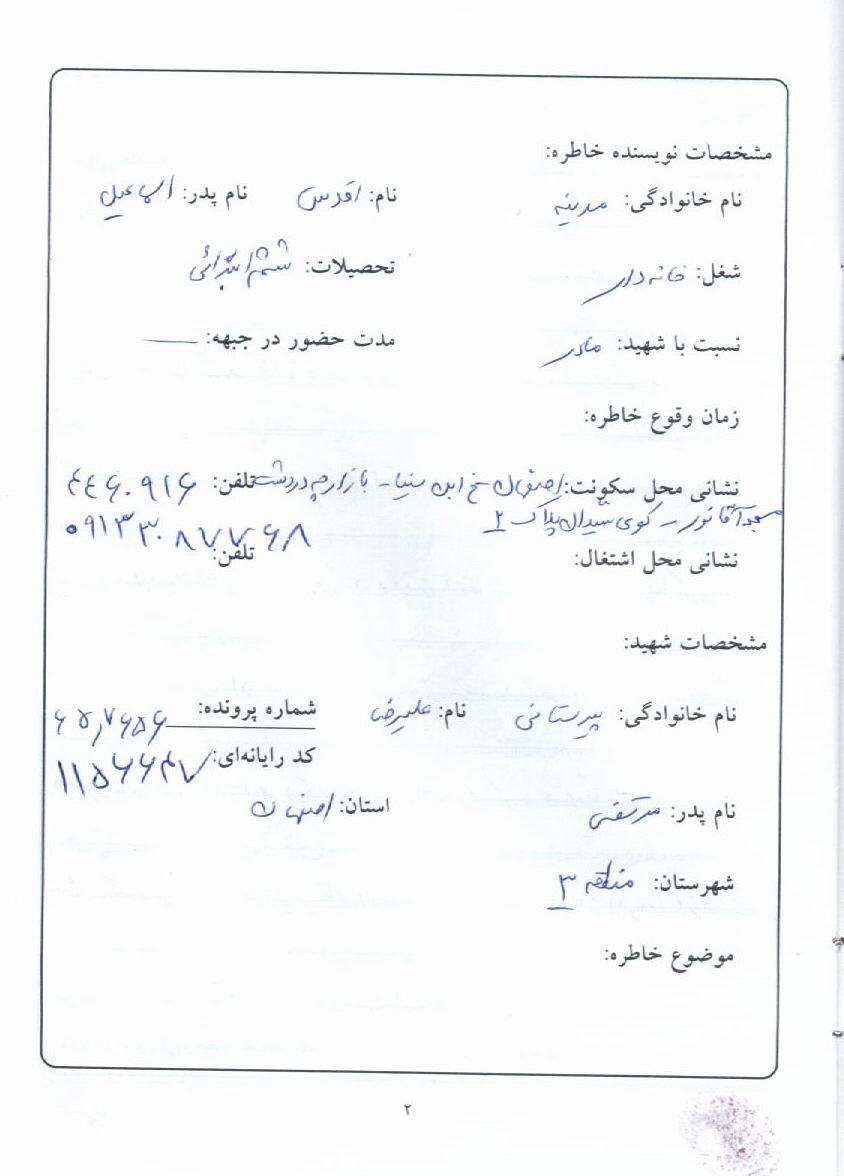 مشخصات نویسنده خاطره:
نام خانوادگی: مدینه نام: اقدس نام پدر: اسماعیل
شغل: خانه دار تحصیلات: ششم ابتدائی
نسبت با شهید: مادر مدت حضور در جبهه:
زمان وقوع خاطره:
نشانی محل سکونت: اصفهان خ ابن سینا - بازارچه دردشت تلفن: ۴۴۶۰۹۱۶
مسجد آقا نور - کوی شیران پلاک ۲ ۰۹۱۳۳۰۸۷۷۶۸
نشانی محل اشتغال: تلفن:
مشخصات شهید:
نام خانوادگی: پیرستانی نام: علیرضا شماره پرونده:
کد رایانه‌ای: ۱۱۵۶۶۴۷
نام پدر: مرتضی استان: اصفهان
شهرستان: منطقه ۳
موضوع خاطره:
۲